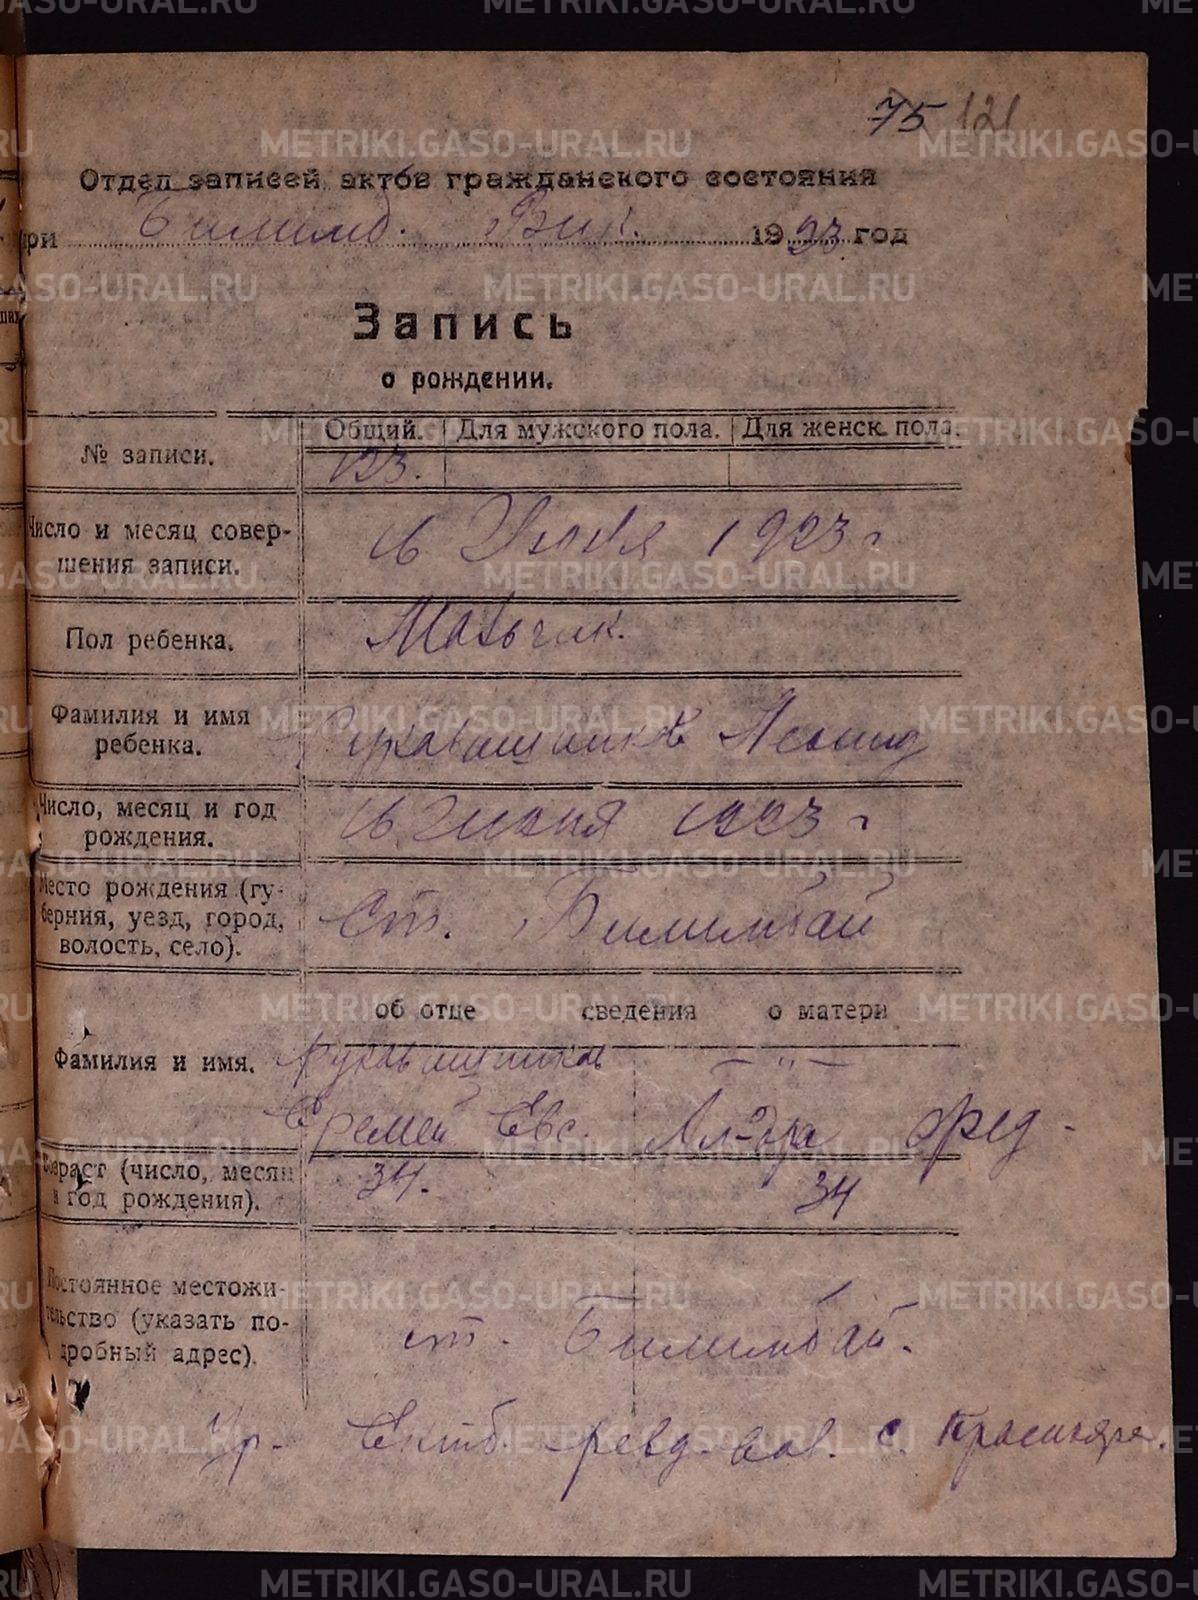 75 121
Отдел записей актов гражданского состояния
при Билимб. Вик. 1923 год
Запись
о рождении.
№ записи. Общий. Для мужского пола. Для женск. пола.
123.
Число и месяц совер-
шения записи.
16 Июня 1923 г
Пол ребенка.
Мальчик.
Фамилия и имя
ребенка.
Рукавишников Леонид
Число, месяц и год
рождения.
16 Июня 1923 г
Место рождения (гу-
берния, уезд, город,
волость, село).
Ст. Билимбай
об отце сведения о матери
Фамилия и имя. Рукавишников — " —
Еремей Евс. Ал-дра Фед-
Возраст (число, месяц
и год рождения).
34. 34
Постоянное местожи-
тельство (указать по-
дробный адрес).
ст. Билимбай.
Ур. Екатб. ревд. вол. с. Краснояра.
METRIKI.GASO-URAL.RU